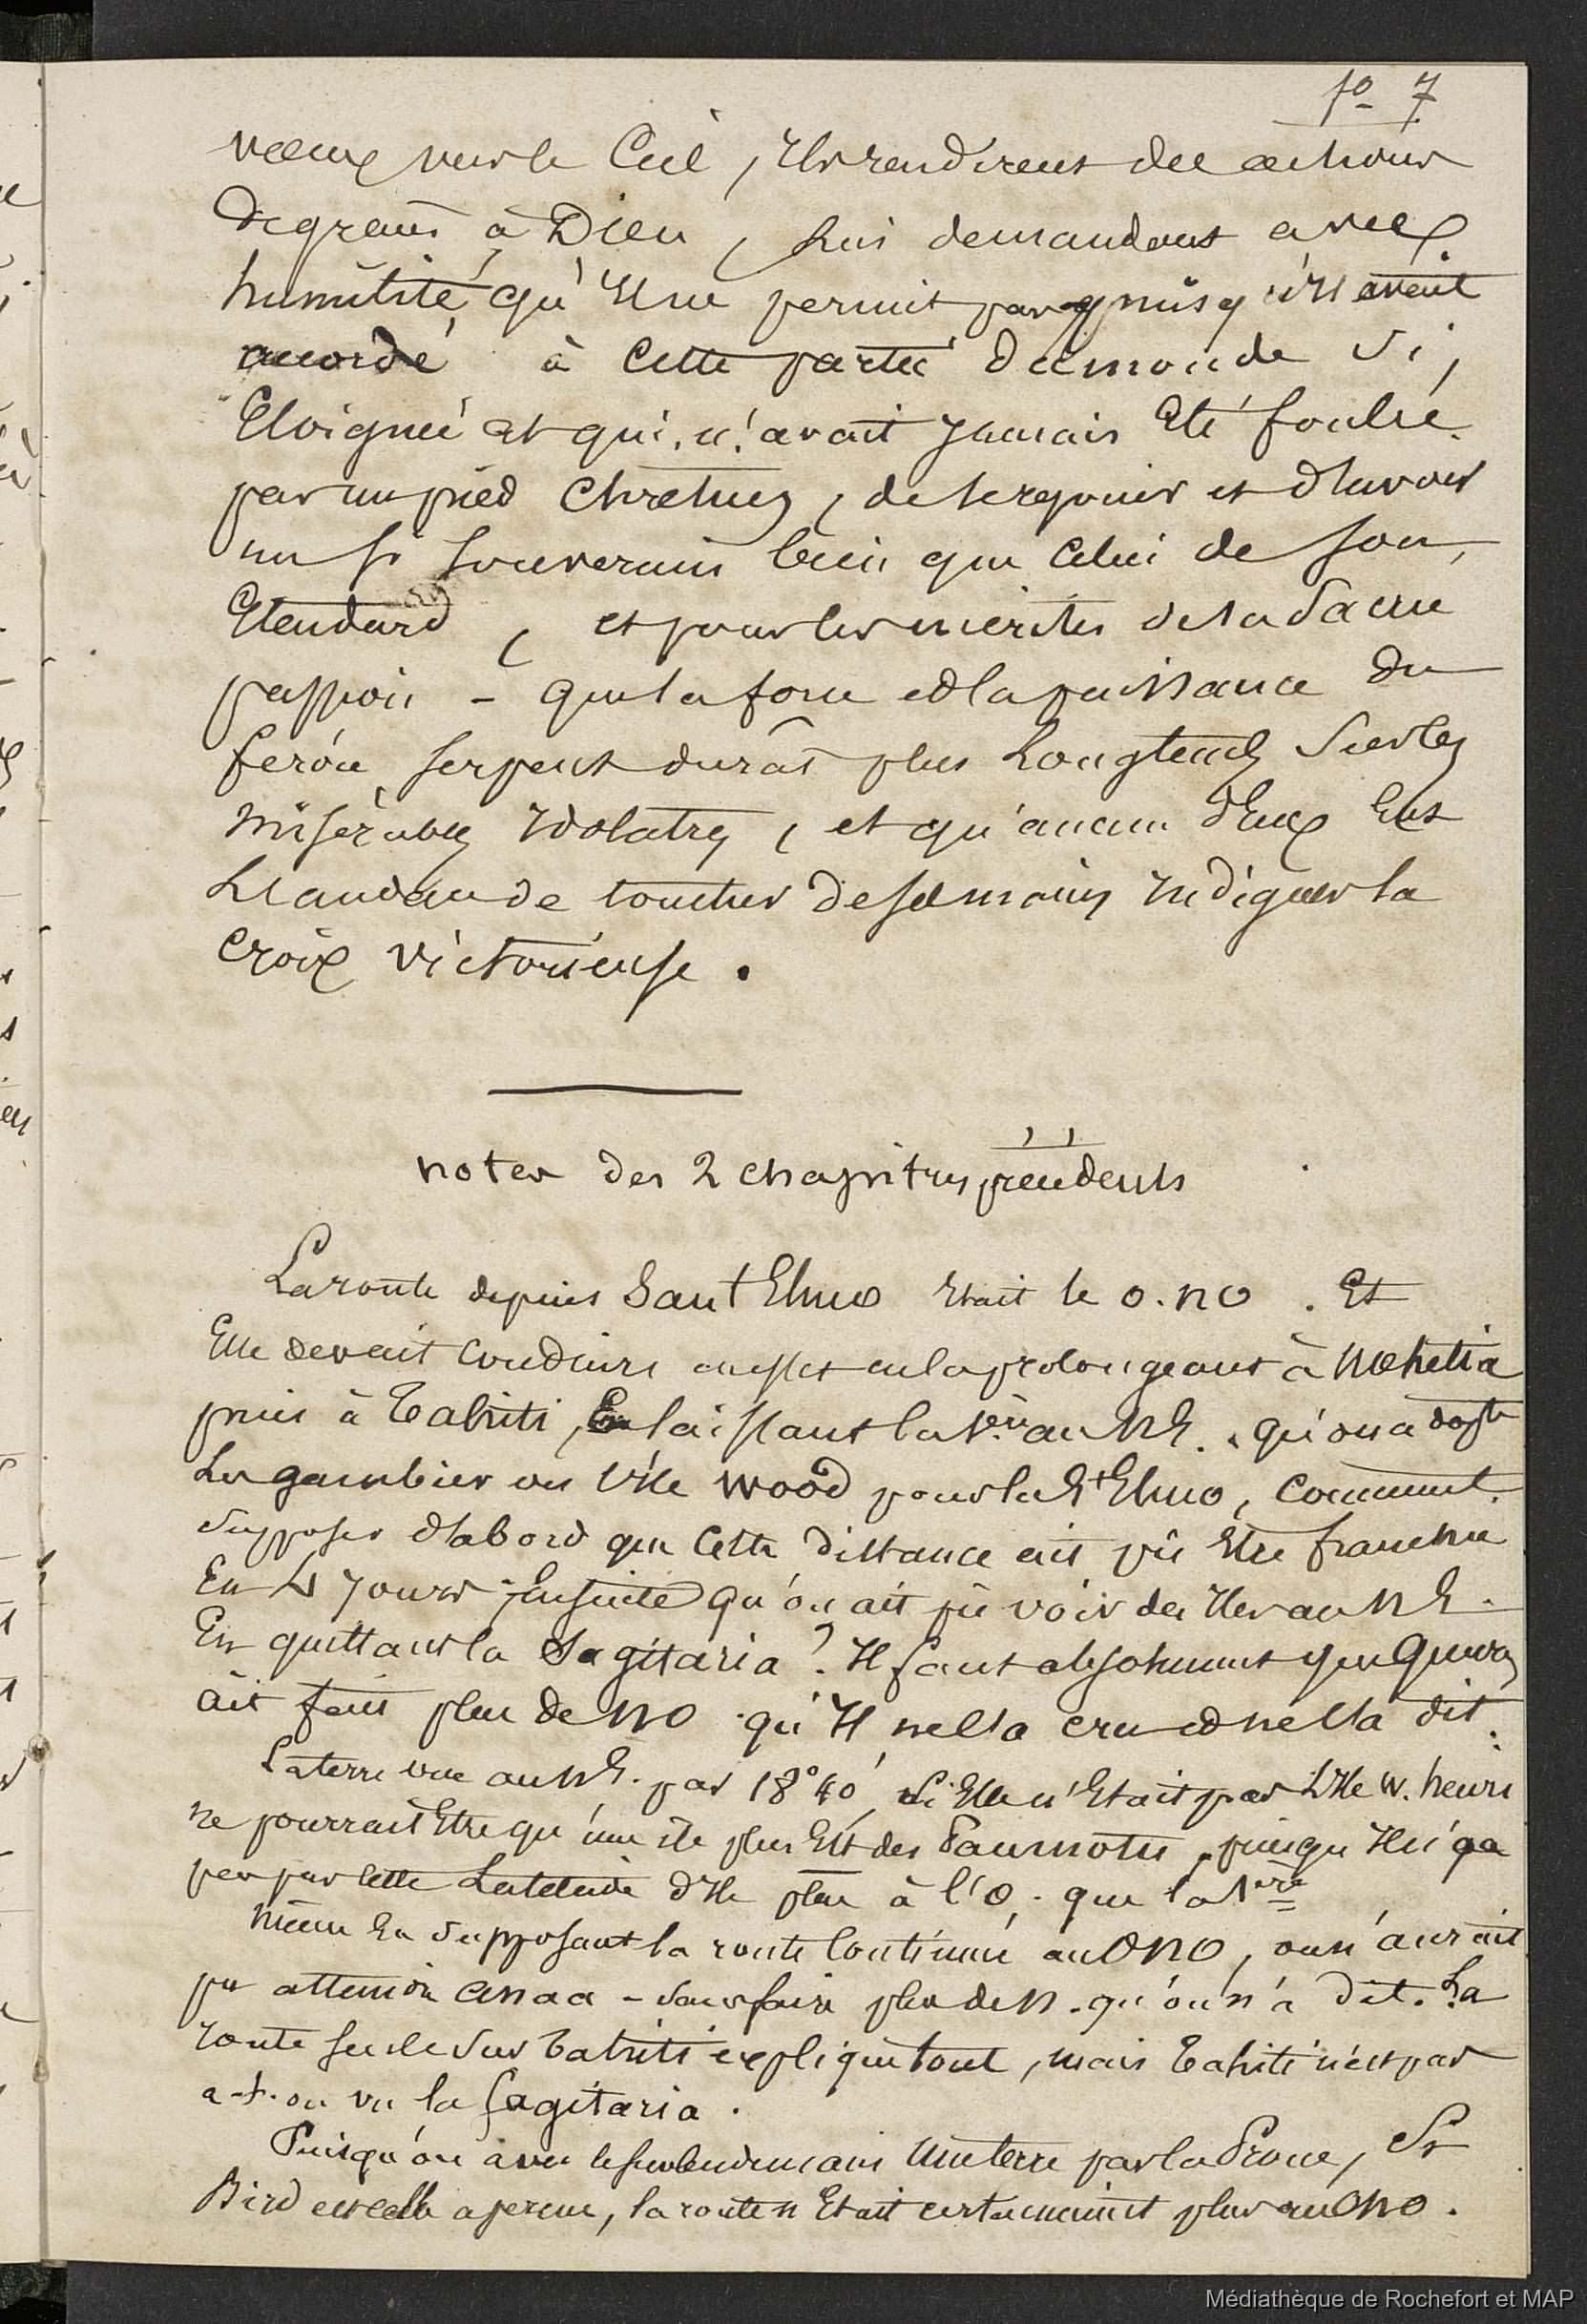 fo 7
vœux vers le Ciel, Ils rendirent des actions
de graces à Dieu, Lui demandant avec
humilité qu'Il ne permit pas puisqu'Il avait
accordé à cette partie du monde si,
Eloignée et qui n'avait Jamais Eté foulée
par un pied chretien, de recevoir et d'avoir
un si souverain bien que celui de son
Etendard, et pour les merites de sa Sacrée
passion - que la force et la puissance du
feroce serpent durât plus Longtemps sur les
misérables Idolatres, et qu'aucun d'Eux Eut
L'audace de toucher de ses mains Indignes la
croix victorieuse.
notes des 2 chapitres précédents
La route depuis Sant Elmo Etait le O.NO. Et
Elle devait conduire en la prolongeant à Mehetia
puis à Tahiti, En laissant la 1ère au NE. qu'on adopte
Les gambier ou l'Ile Wood pour la St Elmo, comment
supposer d'abord que cette distance ait pû Etre franchie
En 4 Jours Ensuite qu'on ait pû voir des Iles au NE.
En quittant la Sagitaria? Il faut absolument que Quiros
ait fait plus de NO qu'Il ne l'a cru et ne l'a dit.
La terre vue au NE. par 18°40', si Elle n'Etait pas L'Ile W. henri
ne pourrait Etre qu'une ile plus Est des Paumotu, puisqu'Il n'y a
pas par cette Latitude d'Ile plus à l'O. que la 1ère
même En supposant la route continuée au ONO, on n'aurait
pu atteindre Anaa - sans faire plus de N. qu'on n'a dit. La
route seule sur Tahiti explique tout, mais Tahiti n'est pas
a-t-on vu la Sagitaria.
Puisqu'on a vu le surlendemain Une terre par la Proue, Si
Bird est celle aperçue, la route n'Etait certainement plus au ONO.
Médiathèque de Rochefort et MAP